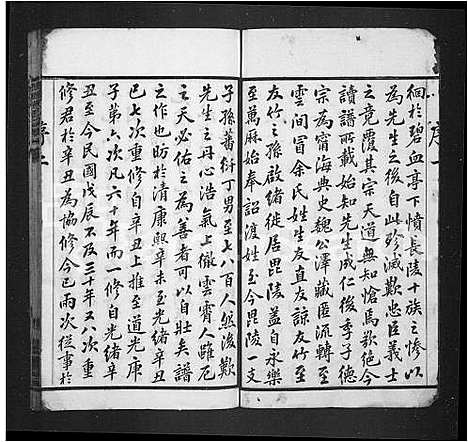 序一
徊於碧血亭下憤長陵十族之慘以
為先生之後自此殄滅歎忠臣義士
之竟覆其宗天道無知愴焉欲絕今
讀譜所載始知先生成仁後季子德
宗為甯海典史魏公澤藏匿流轉至
雲間冒余氏姓生友直友諒友竹至
友竹之孫啟緒徙居毘陵蓋自永樂
至萬厤始奉詔渡姓至今毘陵一支
子孫蕃衍丁男至七八百人然後歎
先生之丹心浩氣上徹雲霄人雖厄
之天必佑之為善者可以自壯矣譜
之作也叔於清康熙辛未至光緒辛
丑七次重修今自辛丑上推至道光庚
子第六次凡六十年而一修自光緒辛
丑至今民國戊辰不及三十年又八次重
修君於辛丑為協修今已兩次從事於
序二